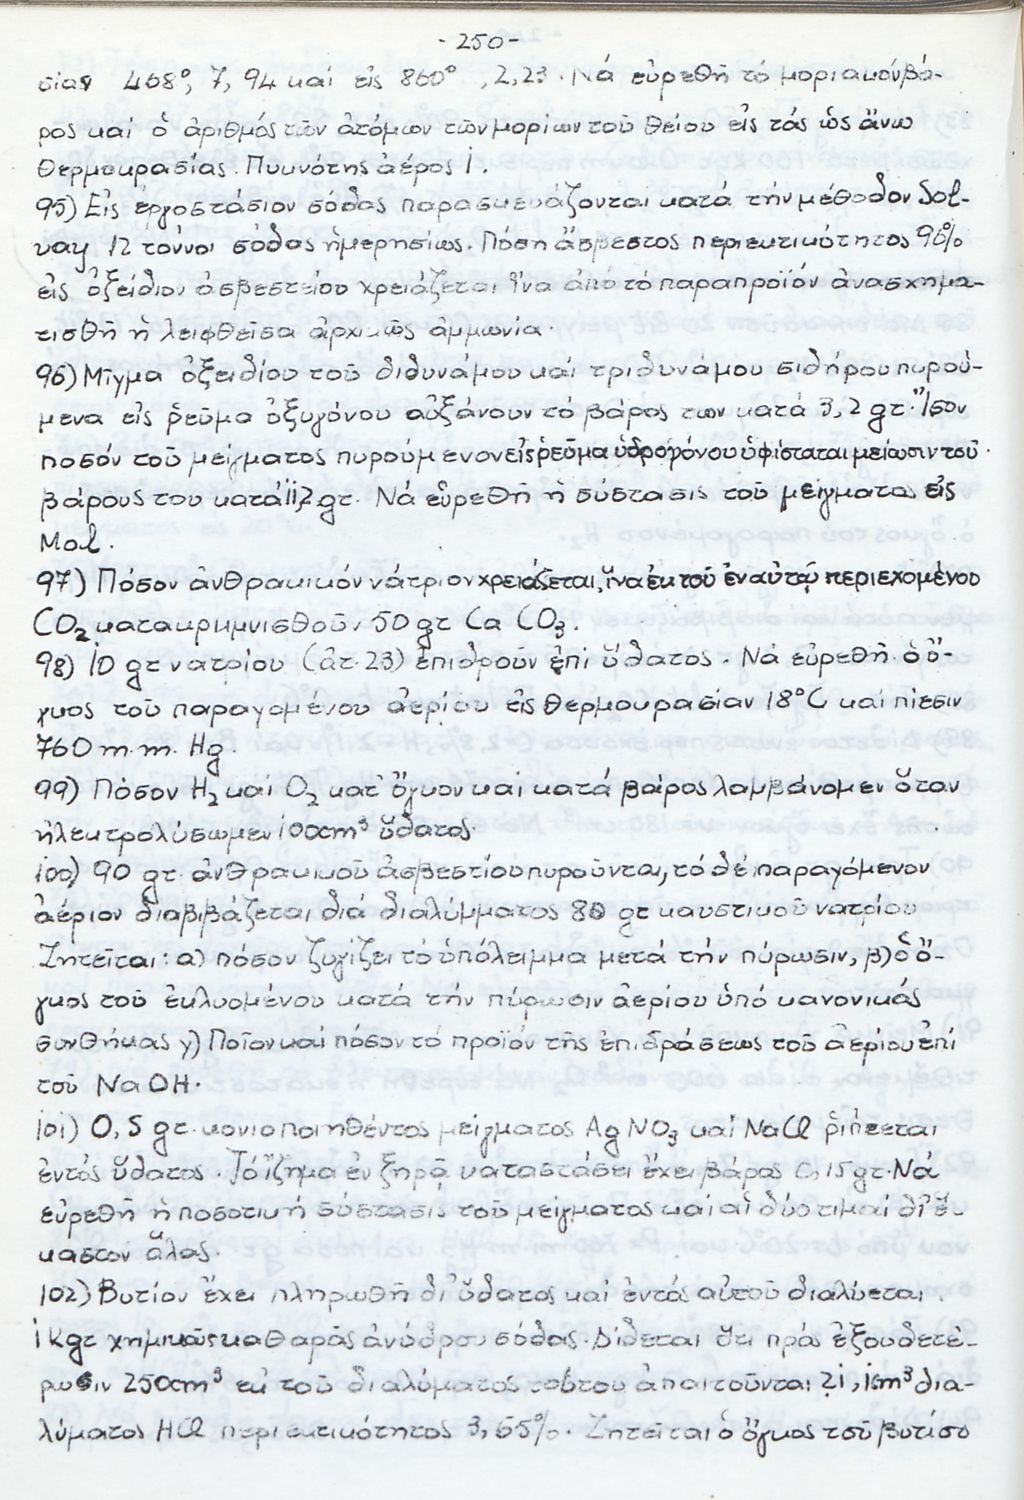 -250-
σίας 468°, 7,94 καί εἰς 860°, 2,23. Νά εὑρεθῆ τό μοριακόν βά-
ρος καί ὁ ἀριθμός τῶν ἀτόμων τῶν μορίων τοῦ θείου εἰς τάς ὡς ἄνω
θερμοκρασίας. Πυκνότης ἀέρος 1.
95) Εἰς ἐργοστάσιον σόδας παρασκευάζονται κατά τήν μέθοδον Sol-
vay 12 τόννοι σόδας ἡμερησίως. Πόση ἄσβεστος περιεκτικότητος 90%
εἰς ὀξείδιον ἀσβεστείου χρειάζεται ἵνα ἀπό τό παραπροϊόν ἀνασχημα-
τισθῆ ἡ λειφθεῖσα ἀρχικῶς ἀμμωνία.
96) Μῖγμα ὀξειδίου τοῦ διδυνάμου καί τριδυνάμου σιδήρου πυρού-
μενα εἰς ρεῦμα ὀξυγόνου αὐξάνουν τό βάρος των κατά 3,2 gt. Ἴσον
ποσόν τοῦ μείγματος πυρούμενον εἰς ρεῦμα ὑδρογόνου ὑφίσταται μείωσιν τοῦ
βάρους του κατά 11,2 gt. Νά εὑρεθῆ ἡ σύστασις τοῦ μείγματος εἰς
Mol.
97) Πόσον ἀνθρακικόν νάτριον χρειάζεται, ἵνα ἐκ τοῦ ἐν αὐτῷ περιεχομένου
CO₂ κατακρημνισθοῦν 50 gt CaCO₃.
98) 10 gt νατρίου (ἀτ. 23) ἐπιδροῦν ἐπί ὕδατος. Νά εὑρεθῆ ὁ ὄ-
γκος τοῦ παραγομένου ἀερίου εἰς θερμοκρασίαν 18°C καί πίεσιν
760 m.m. Hg
99) Πόσον H₂ καί O₂ κατ' ὄγκον καί κατά βάρος λαμβάνομεν ὅταν
ἠλεκτρολύσωμεν 100cm³ ὕδατος.
100) 90 gt. ἀνθρακικοῦ ἀσβεστίου πυροῦνται, τό δέ παραγόμενον
ἀέριον διαβιβάζεται διά διαλύμματος 80 gt καυστικοῦ νατρίου
Ζητεῖται: α) πόσον ζυγίζει τό ὑπόλειμμα μετά τήν πύρωσιν, β) ὁ ὄ-
γκος τοῦ ἐκλυομένου κατά τήν πύρωσιν ἀερίου ὑπό κανονικάς
συνθήκας γ) Ποῖον καί πόσον τό προϊόν τῆς ἐπιδράσεως τοῦ ἀερίου ἐπί
τοῦ NaOH.
101) 0,5 gt. κονιοποιηθέντος μείγματος AgNO₃ καί NaCl ρίπτεται
ἐντός ὕδατος. Τό ἵζημα ἐν ξηρᾷ καταστάσει ἔχει βάρος 0,15 gt. Νά
εὑρεθῆ ἡ ποσοτική σύστασις τοῦ μείγματος καί αἱ δύο τιμαί δι' ἕ-
καστον ἅλας
102) Βυτίον ἔχει πληρωθῆ δι' ὕδατος καί ἐντός αὐτοῦ διαλύεται
1 kgt χημικῶς καθαρᾶς ἀνύδρου σόδας. Δίδεται ὅτι πρός ἐξουδετέ-
ρωσιν 250cm³ ἐκ τοῦ διαλύματος τούτου ἀπαιτοῦνται 21,1cm³ δια-
λύματος HCl περιεκτικότητος 3,65%. Ζητεῖται ὁ ὄγκος τοῦ βυτίου